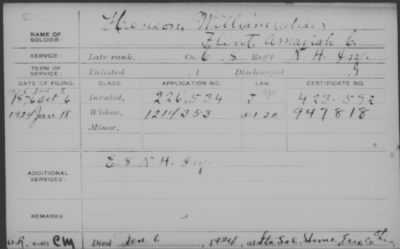 NAME OF SOLDIER: Henson, William, alias
Flint, Amaziah C.
SERVICE: Late rank, Co. C, 8 Reg't N. H. Inf.
TERM OF SERVICE: Enlisted , 1 Discharged , 
DATE OF FILING. CLASS. APPLICATION NO. LAW. CERTIFICATE NO.
1876 Oct 6 Invalid, 226,534 423,592
1924 Jan 18 Widow, 1214353 947818
Minor,
ADDITIONAL SERVICES: C. 8 N. H. Inf.
REMARKS:
Died Jan 6, 1924, at Sol. Home, Erie Co.